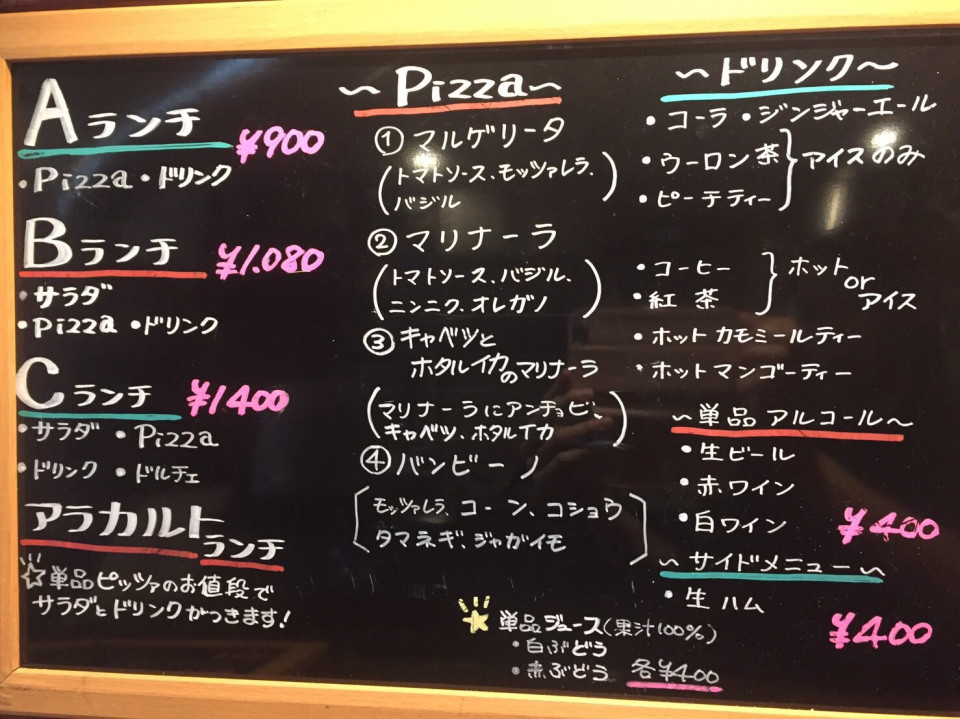 Aランチ ¥900
・Pizza ・ドリンク
Bランチ ¥1.080
・サラダ
・Pizza ・ドリンク
Cランチ ¥1400
・サラダ ・Pizza
・ドリンク ・ドルチェ
アラカルトランチ
☆単品ピッツァのお値段で
サラダとドリンクがつきます!
～Pizza～
① マルゲリータ
(トマトソース、モッツァレラ、
バジル)
② マリナーラ
(トマトソース、バジル、
ニンニク、オレガノ)
③ キャベツと
ホタルイカのマリナーラ
(マリナーラにアンチョビ、
キャベツ、ホタルイカ)
④ バンビーノ
[モッツァレラ、コーン、コショウ
タマネギ、ジャガイモ]
☆単品ジュース(果汁100%)
・白ぶどう
・赤ぶどう 各¥400
～ドリンク～
・コーラ ・ジンジャーエール
・ウーロン茶
・ピーチティー
}アイスのみ
・コーヒー
・紅茶
}ホット or アイス
・ホットカモミールティー
・ホットマンゴーティー
～単品アルコール～
・生ビール
・赤ワイン
・白ワイン ¥400
～サイドメニュー～
・生ハム
¥400